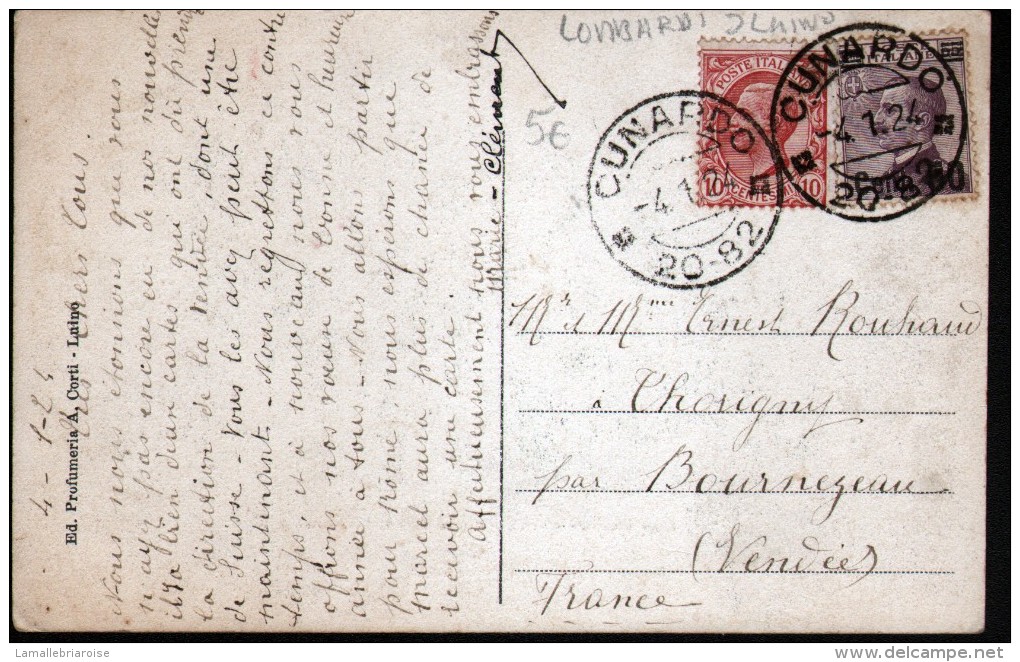 LOMBARDI
5€
POSTE ITALIANE
10 CENTESIMI 10
CUNARDO
-4.1.24
20-82
CUNARDO
-4.1.24
20-82
Ed. Profumeria A. Corti - Luino
4-1-24
Très Chers Tous.
Nous nous étonnions que vous
n'ayez pas encore eu de nos nouvelles
il y a bien deux cartes qui ont dû prendre
la direction de la Vendée, dont une
de Suisse - Vous les avez peut être
maintenant - Nous regrettons ce contre
temps, et à nouveau nous vous
offrons nos voeux de bonne et heureuse
année à tous - Nous allons partir
pour Rome, nous espérons que
Marcel aura plus de chance de
recevoir une carte.
affectueusement nous vous embrassons
Marie - Clément
Mr et Mme Ernest Rouhaud
à Thorigny
par Bournezeau
(Vendée)
France
Lamallebriaroise
delcampe.net